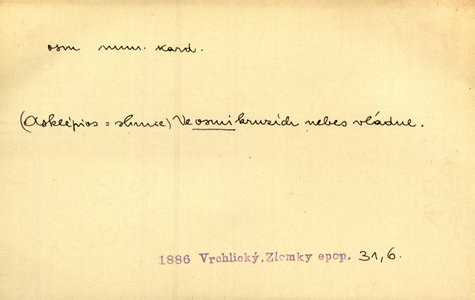 osm num. kard.
(Asklépios = slunce) Ve osmi kruzích nebes vládne.
1886 Vrchlický, Zlomky epop. 31,6.